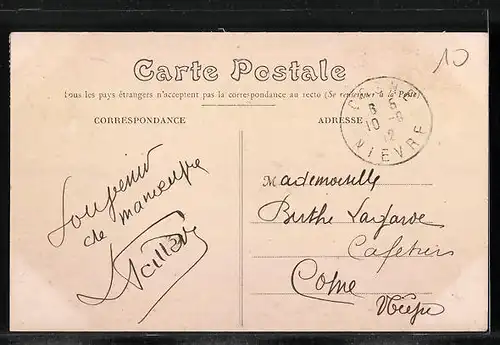 10
Carte Postale
Tous les pays étrangers n'acceptent pas la correspondance au recto (Se renseigner à la Poste)
CORRESPONDANCE
ADRESSE
NIEVRE
Souvenir
de manoeuvre
Mademoiselle
Berthe Lagarde
Cosne